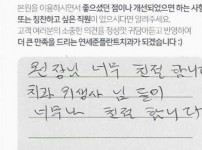 본원을 이용하시면서 좋으셨던 점이나 개선되었으면 하는 사항
또는 칭찬하고 싶은 직원이 있으시다면 알려주세요.
고객 여러분의 소중한 의견을 정성껏 귀담아듣고 반영하여
더 큰 만족을 드리는 연세준플란트치과가 되겠습니다 :)
원장님 너무 친절 합니다
치과 위생사 님 들이
너무나 친절 합니다